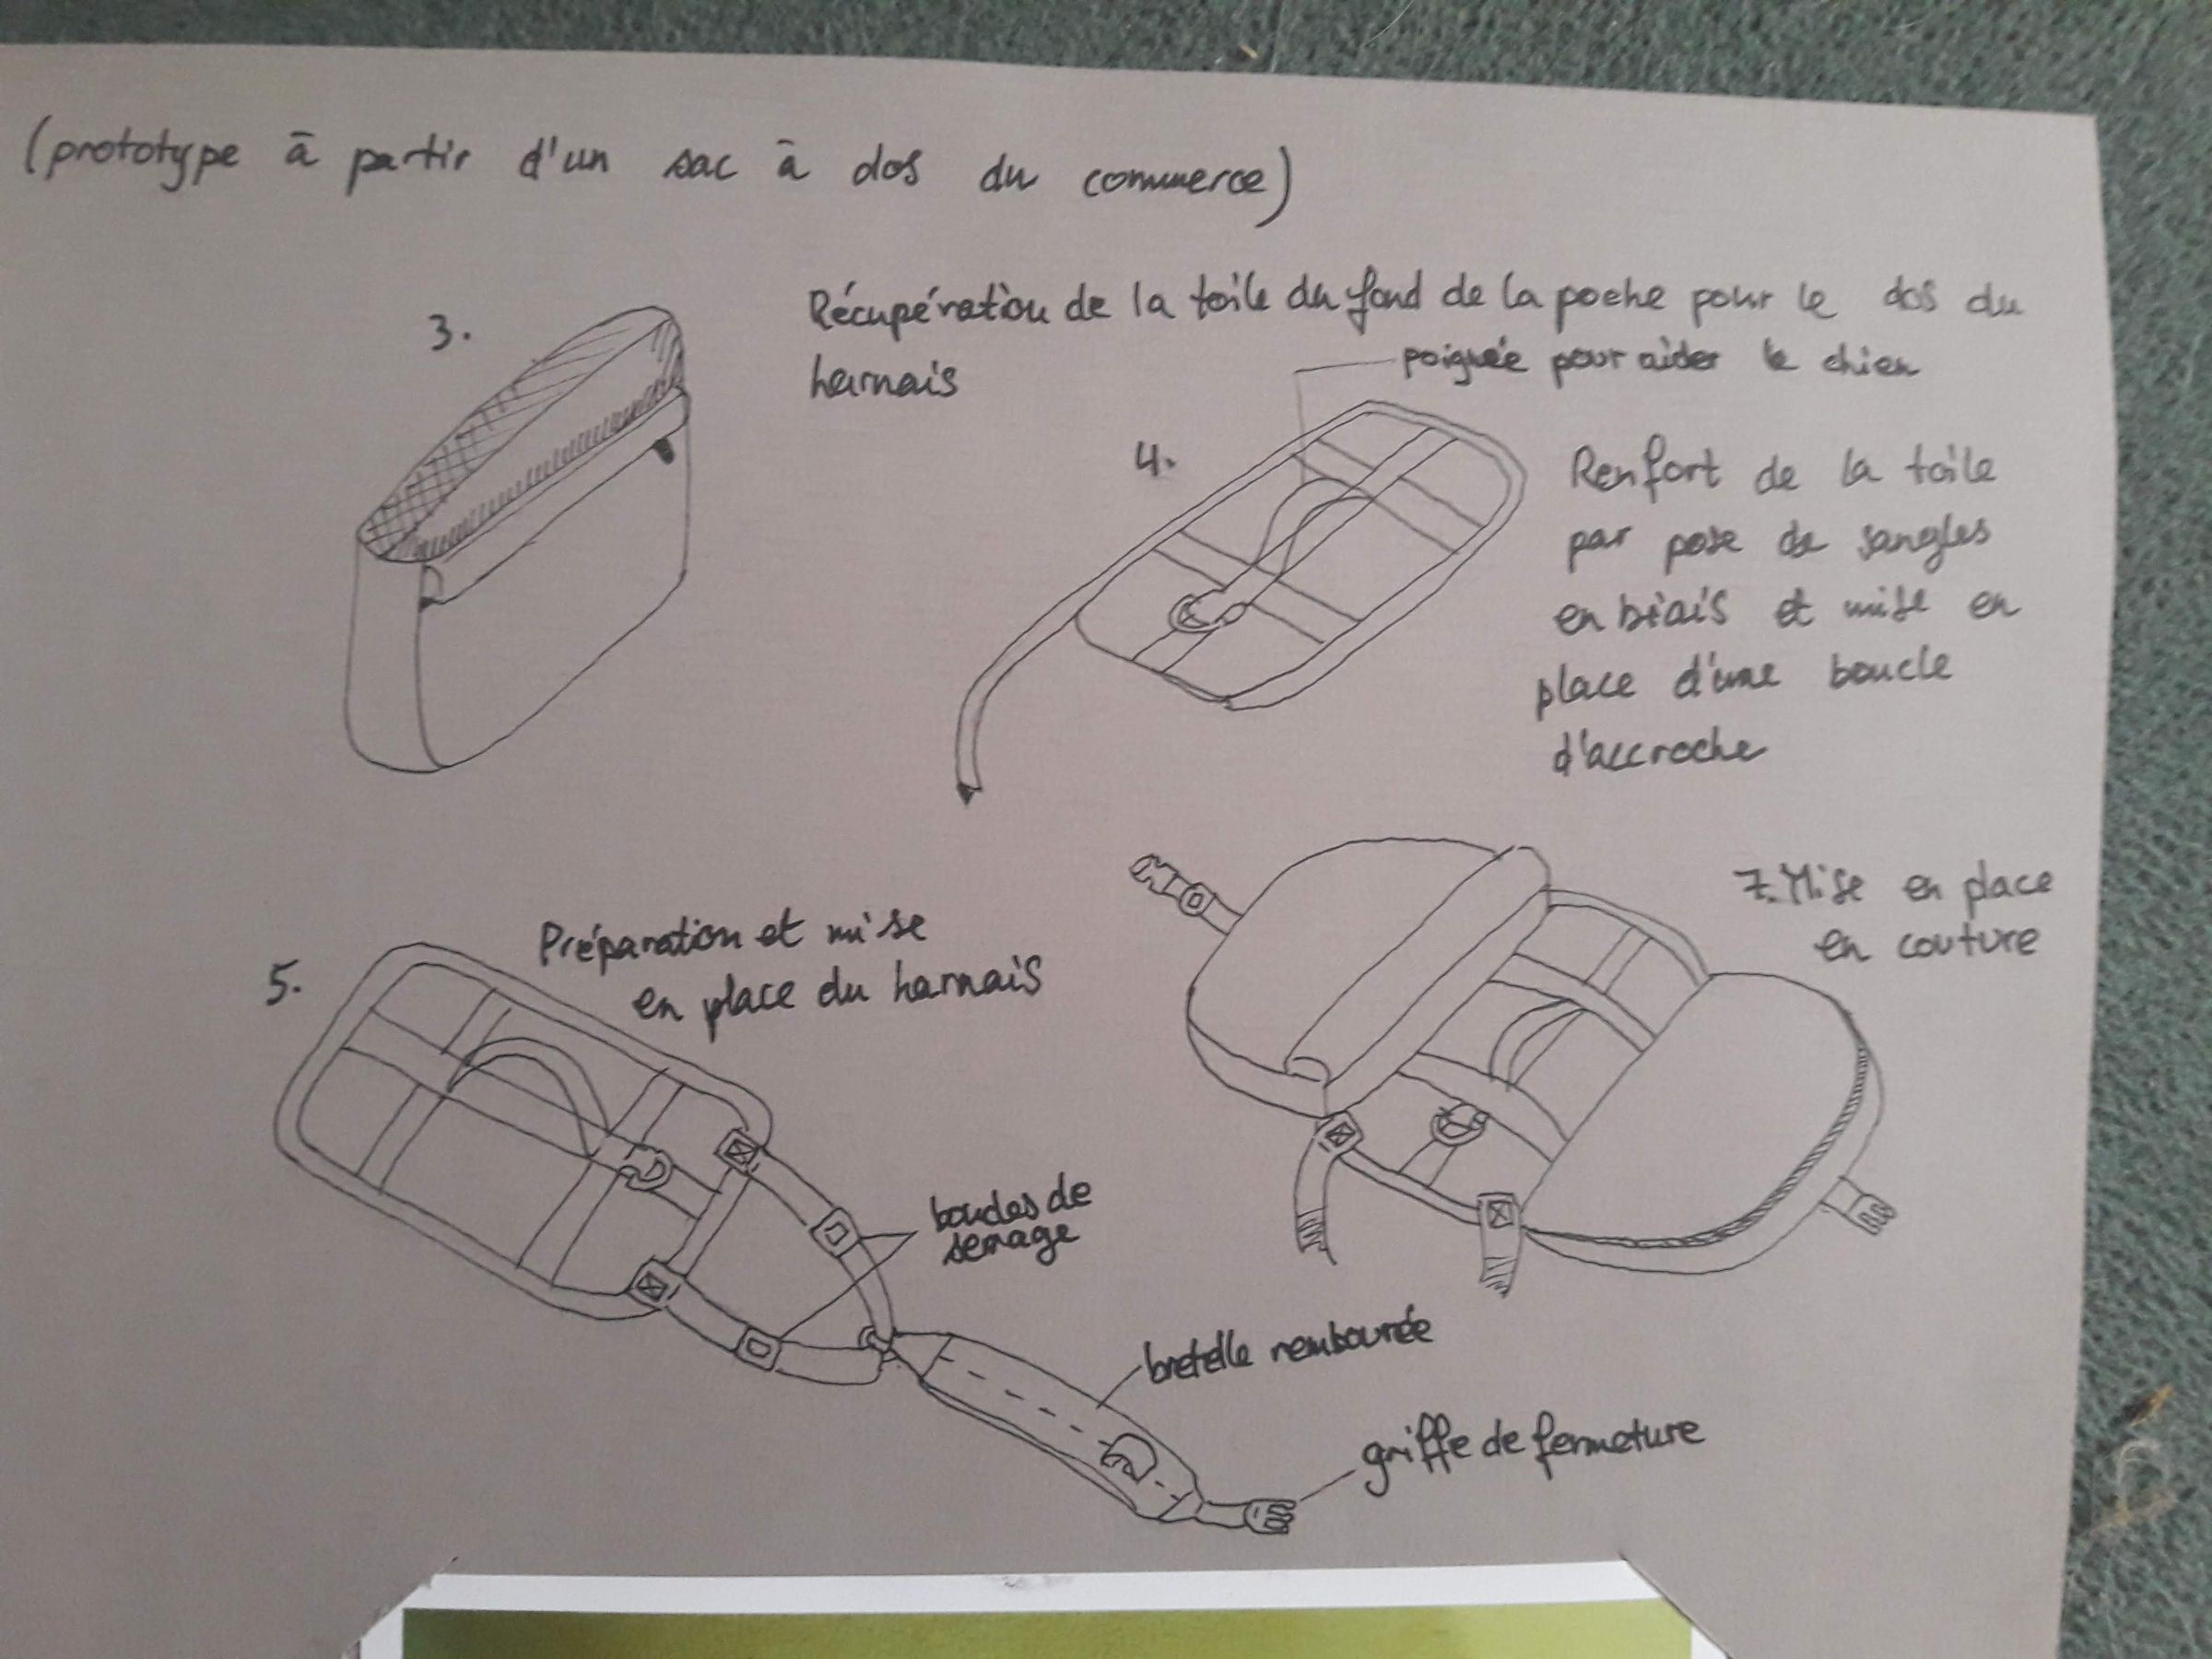 (prototype à partir d'un sac à dos du commerce)
3.
Récupération de la toile du fond de la poche pour le dos du
harnais
poignée pour aider le chien
4.
Renfort de la toile
par pose de sangles
en biais et mise en
place d'une boucle
d'accroche
5.
Préparation et mise
en place du harnais
7. Mise en place
en couture
boucles de
serrage
bretelle rembourée
griffe de fermeture